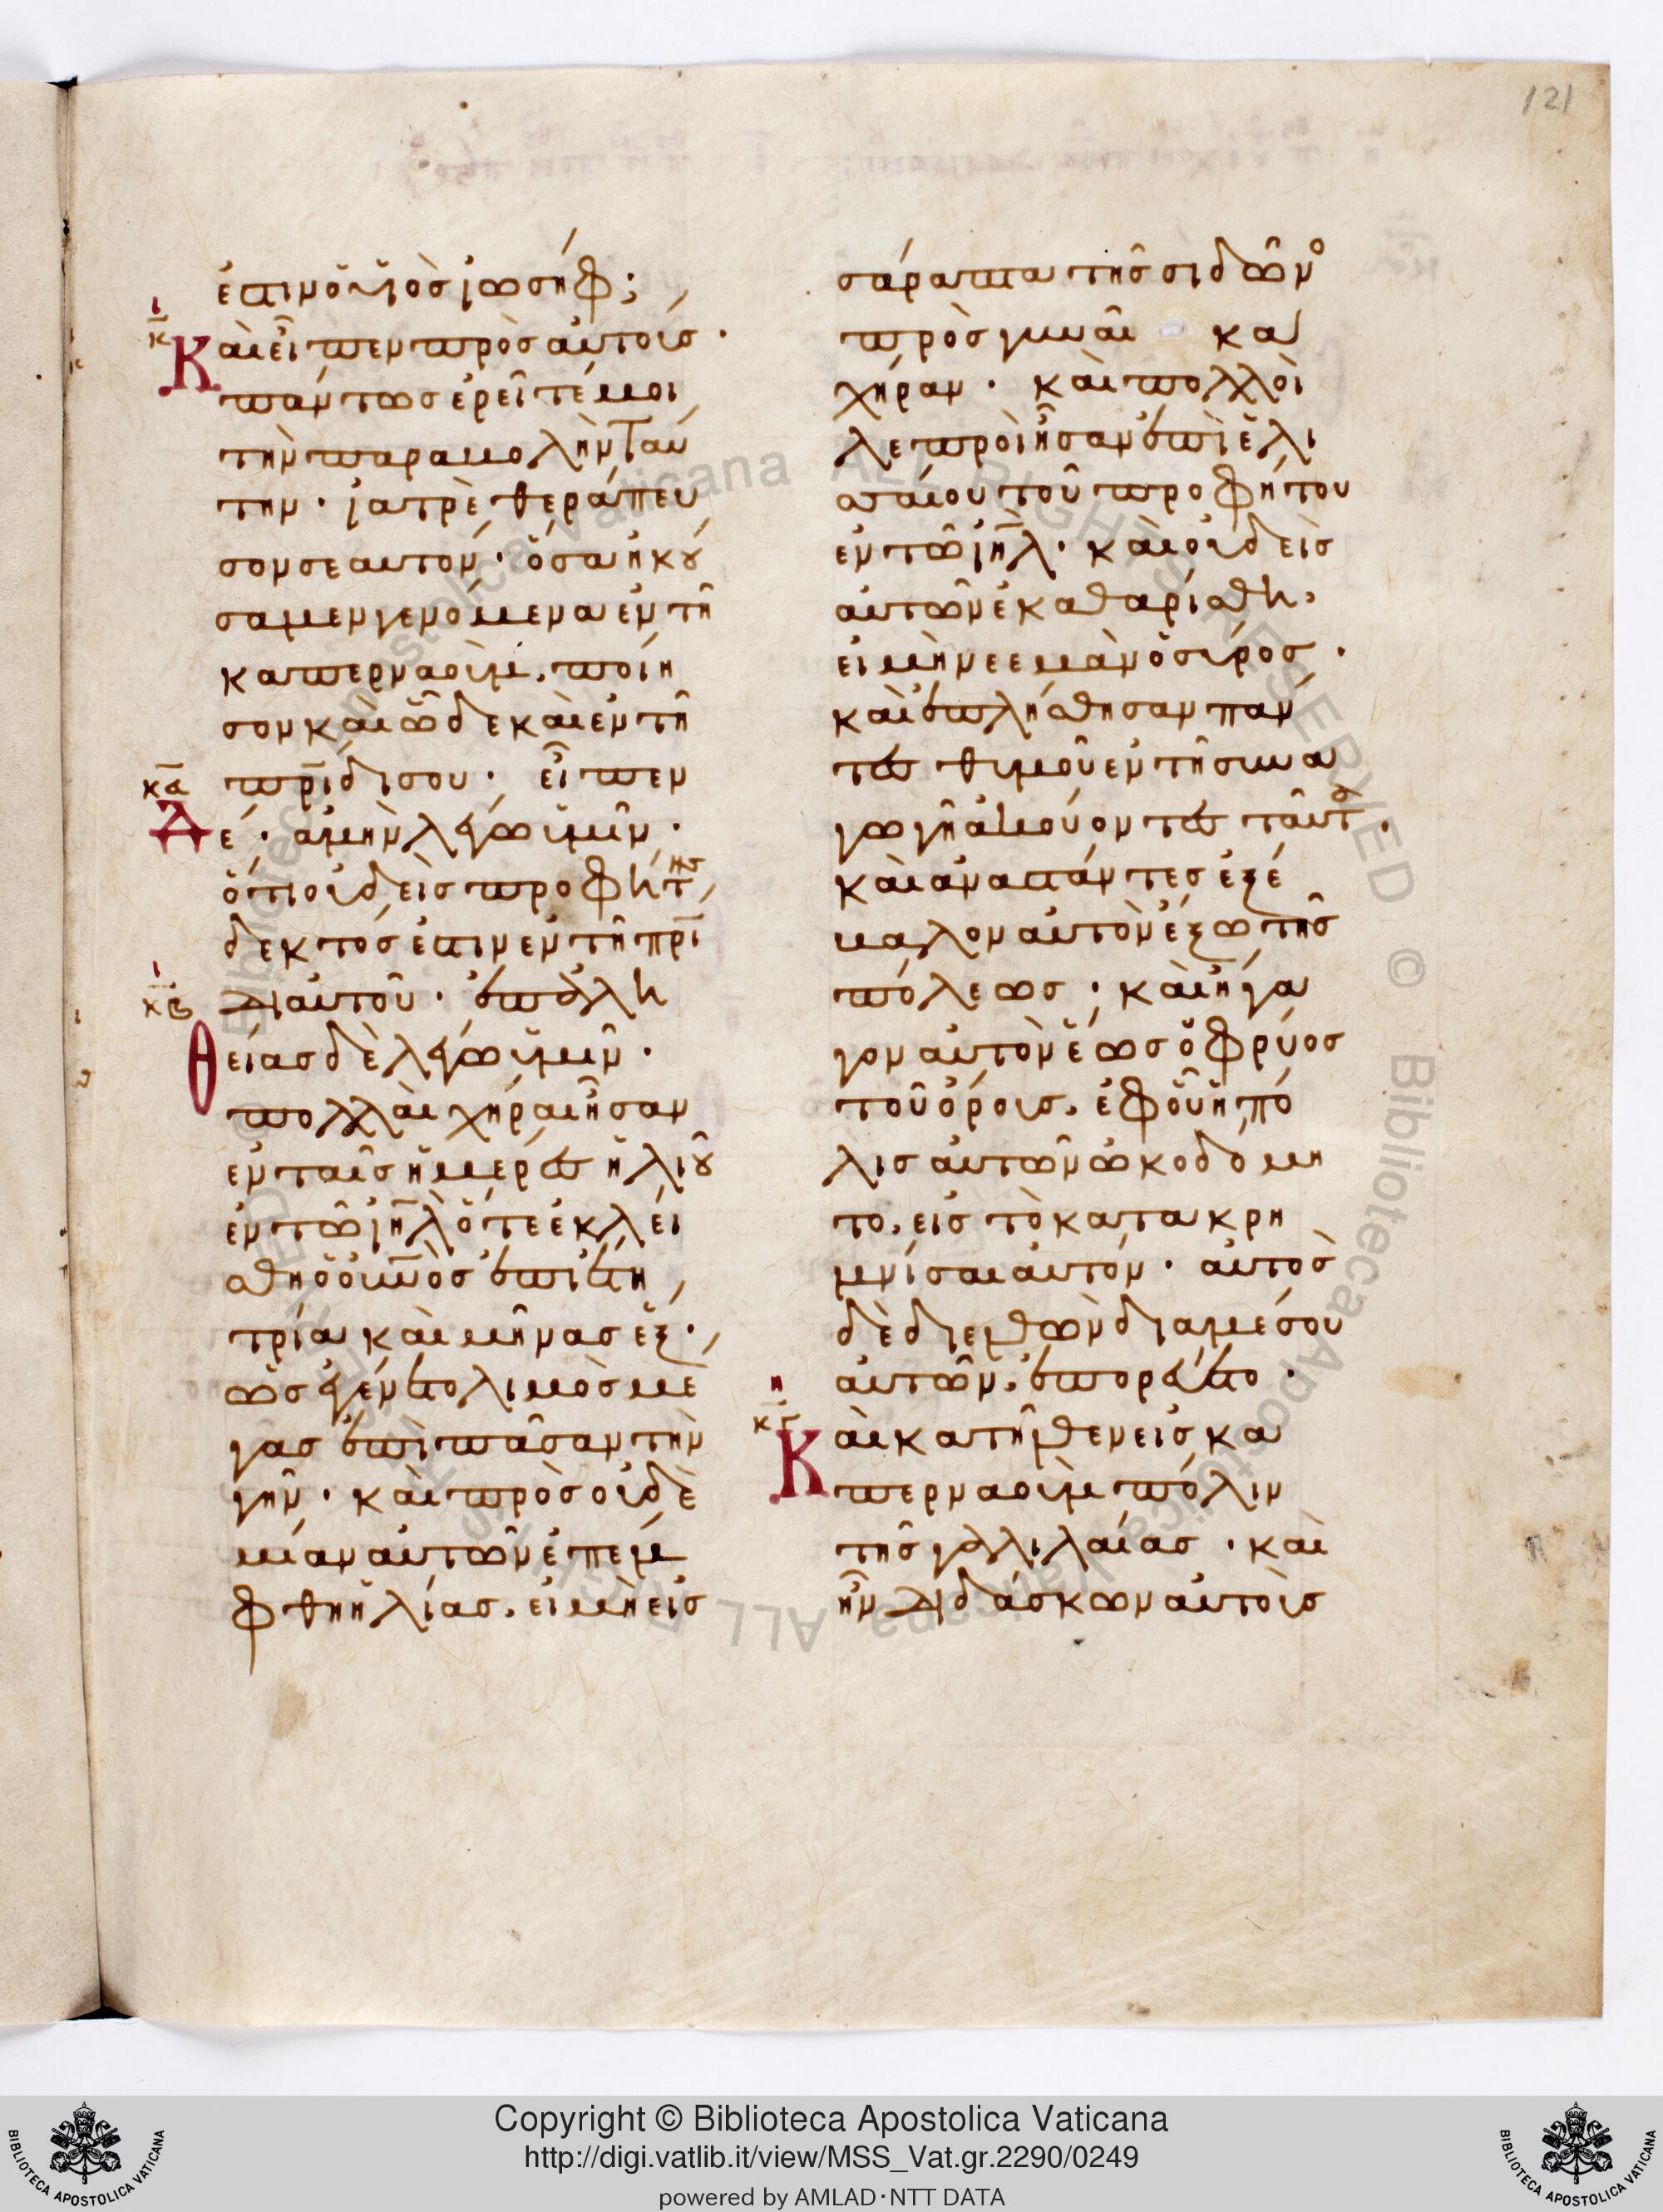 121
ἐστιν ὁ υἱὸς ἰωσήφ;
ι
κ
Καὶ εἶπεν πρὸς αὐτούς·
πάντως ἐρεῖτέ μοι
τὴν παραβολὴν ταύ
την· ἰατρὲ θεράπευ
σον σεαυτόν· ὅσα ἠκού
σαμεν γενόμενα ἐν τῇ
καπερναούμ, ποίη
σον καὶ ὧδε καὶ ἐν τῇ
κα
πρίδι σου· εἶπεν
Δέ· ἀμὴν λέγω ὑμῖν·
ὅτι οὐδεὶς προφήτης
δεκτός ἐστιν ἐν τῇ πρί
ι
κβ
δι αὐτοῦ· ἐπ ἀλη
Θείας δὲ λέγω ὑμῖν·
πολλαὶ χήραι ἦσαν
ἐν ταῖς ἡμέραις ἠλιοῦ
ἐν τῷ ιηλ ὅτε ἐκλεί
σθη ὁ οὐνος ἐπὶ ἔτη
τρία καὶ μῆνας ἕξ·
ὡς ἐγένετο λιμὸς μέ
γας ἐπὶ πᾶσαν τὴν
γῆν· καὶ πρὸς οὐδε
μίαν αὐτῶν ἐπέμ
φθη ἠλίας, εἰ μὴ εἰς
σάραπτα τῆς σιδῶνο
πρὸς γυναῖ κα
χήραν· καὶ πολλοὶ
λεπροὶ ἦσαν ἐπὶ ἐλι
σσαίου τοῦ προφήτου
ἐν τῷ ιηλ· καὶ οὐδεὶς
αὐτῶν ἐκαθαρίσθη,
εἰ μὴ νεεμὰν ὁ σύρος·
καὶ ἐπλήσθησαν πάν
τες θυμοῦ ἐν τῇ συνα
γωγῇ ἀκούοντες ταῦτα·
καὶ ἀναστάντες ἐξέ
βαλον αὐτὸν ἔξω τῆς
πόλεως· καὶ ἤγα
γον αὐτὸν ἕως ὀφρύος
τοῦ ὄρους, ἐφ οὗ ἡ πό
λις αὐτῶν ὠκοδόμη
το, εἰς τὸ κατακρη
μνίσαι αὐτόν· αὐτὸς
δὲ διελθὼν διὰ μέσου
αὐτῶν, ἐπορεύετο·
η
κγ
Καὶ κατῆλθεν εἰς κα
περναοὺμ πόλιν
τῆς γαλιλαίας· καὶ
ἦν διδάσκων αὐτοὺς
Copyright © Biblioteca Apostolica Vaticana
http://digi.vatlib.it/view/MSS_Vat.gr.2290/0249
powered by AMLAD·NTT DATA
BIBLIOTECA APOSTOLICA VATICANA
BIBLIOTECA APOSTOLICA VATICANA